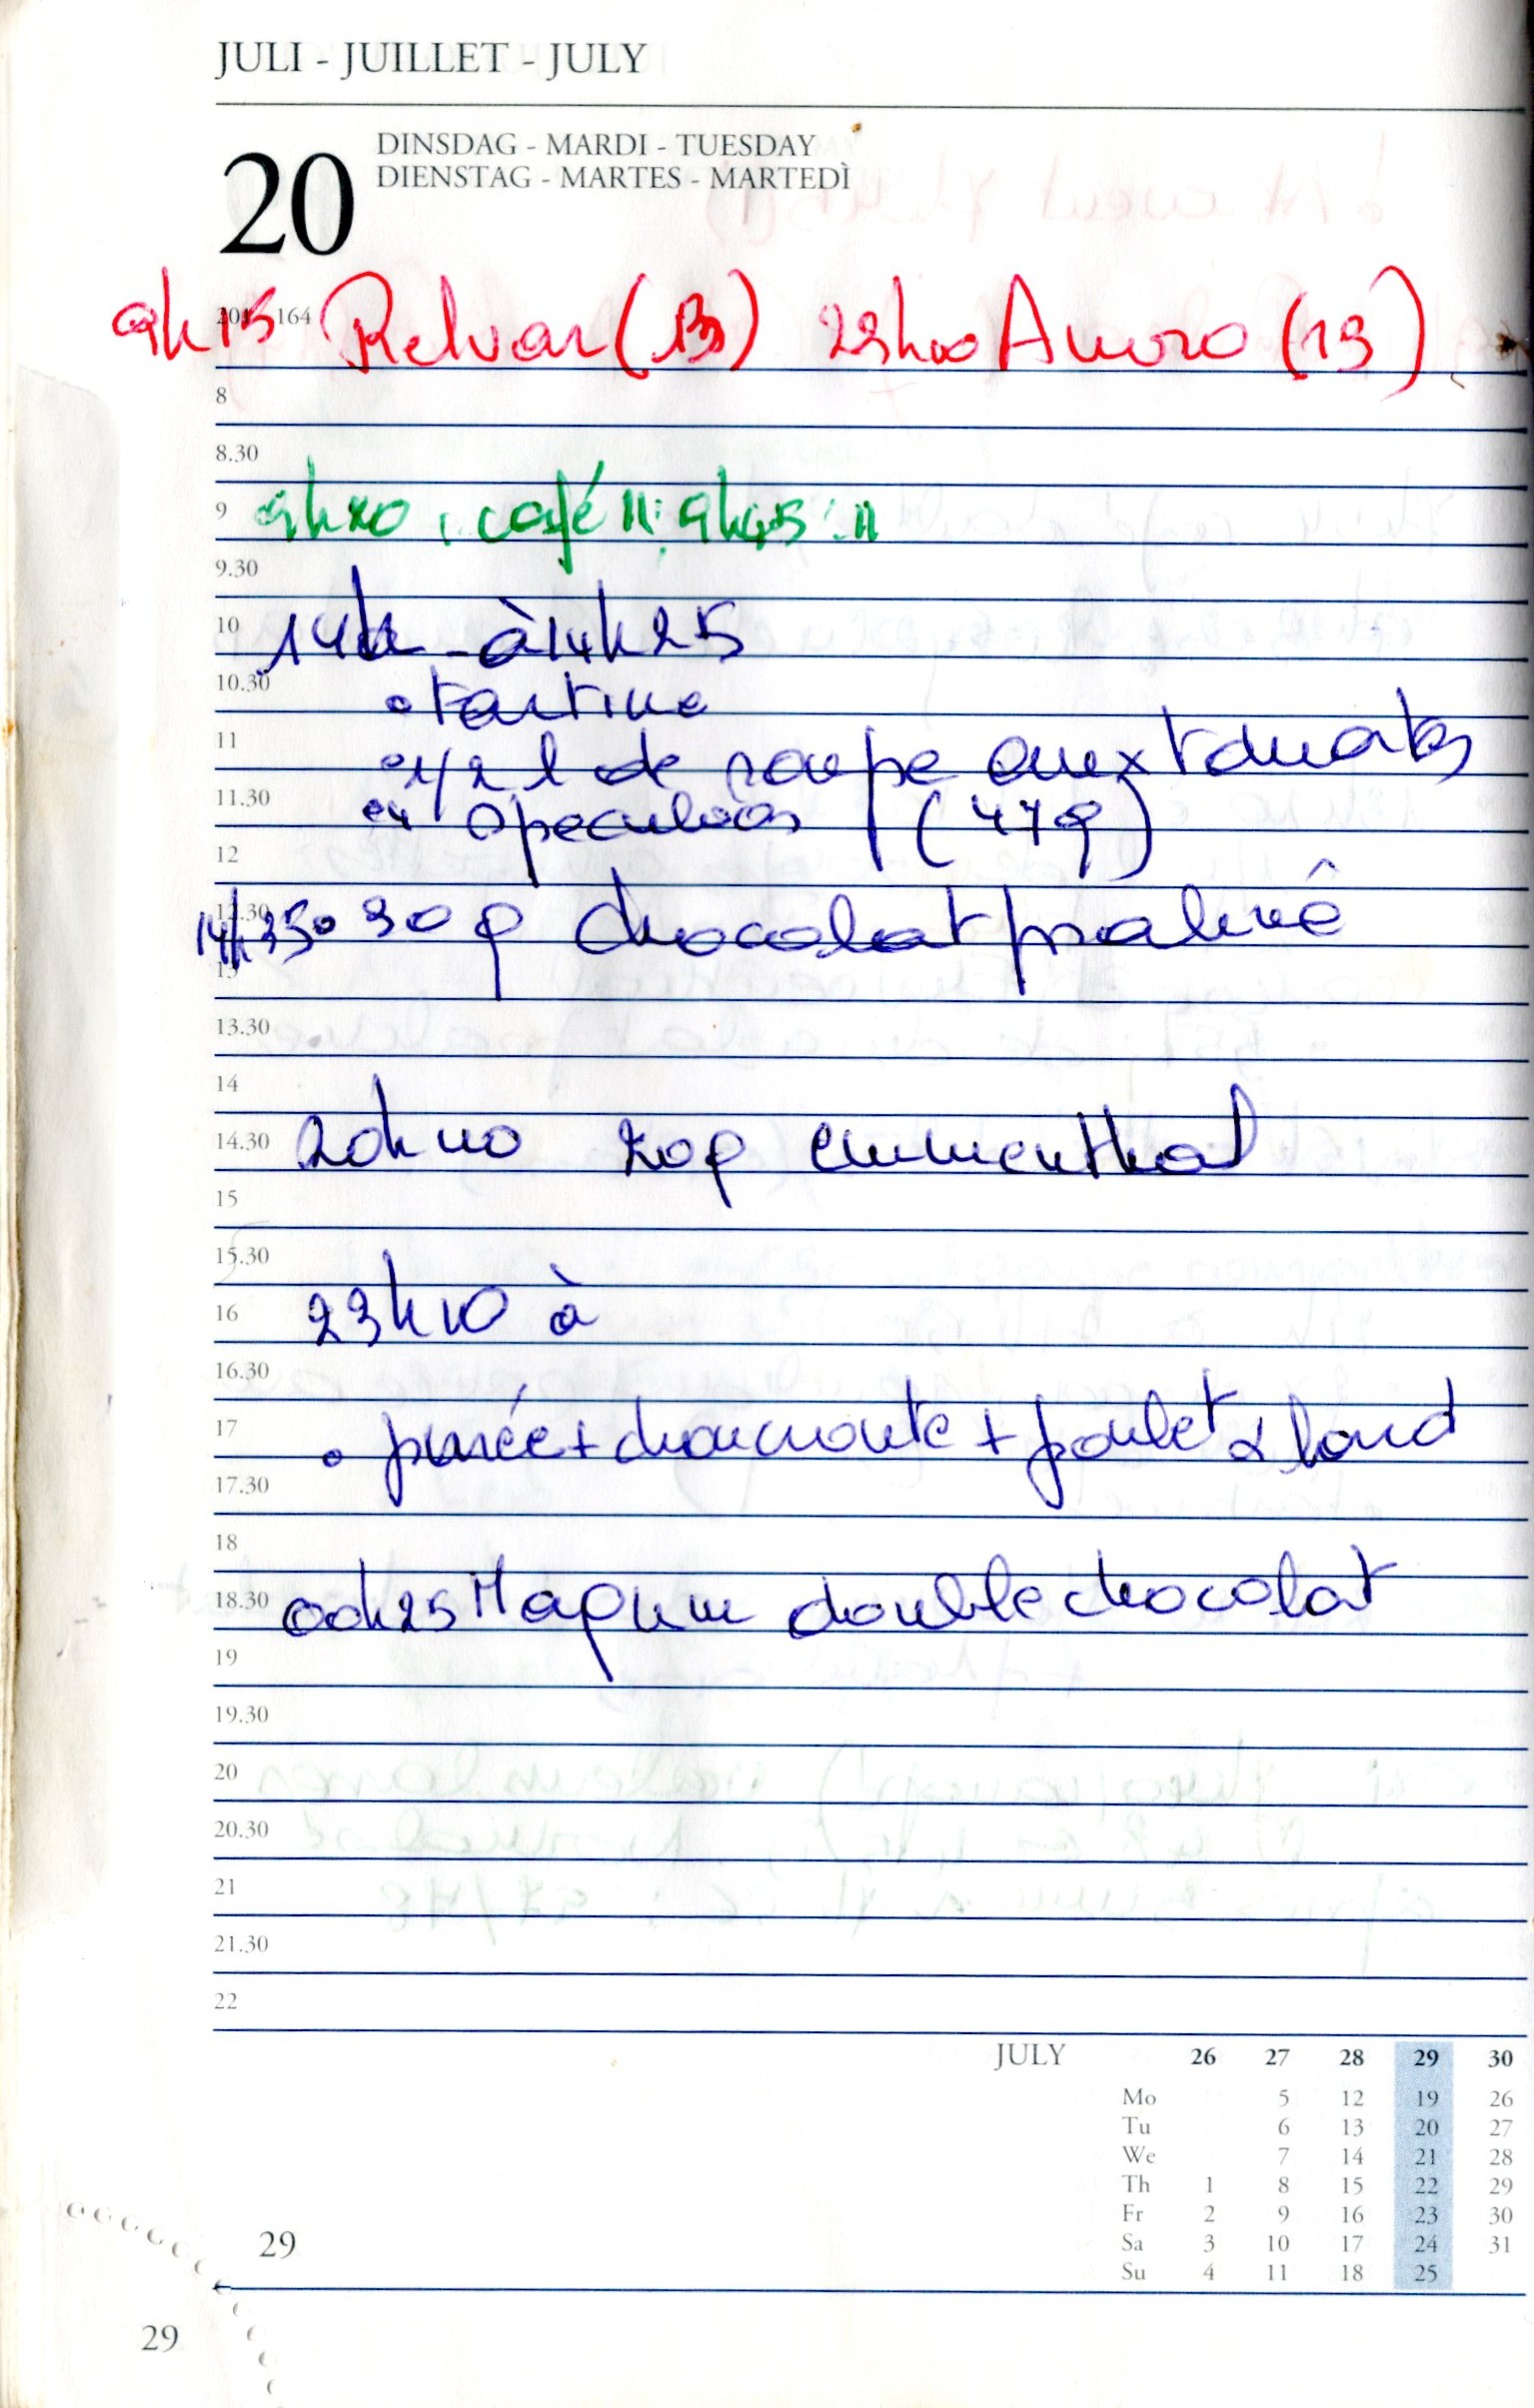 JULI - JUILLET - JULY
20
DINSDAG - MARDI - TUESDAY
DIENSTAG - MARTES - MARTEDÌ
164
9h15 (13) 23h00 (13)
8
8.30
9
café 9h45
9.30
10
14h à 14h25
10.30
• tartine
11
• 1/2 l de soupe aux tomates
11.30
speculoos (47g)
12
12.30
14h35 • 30 g chocolat praliné
13
13.30
14
14.30
20h40 20g emmenthal
15
15.30
16
23h10 à
16.30
17
• purée + choucroute + poulet & lard
17.30
18
18.30
00h25 Magnum double chocolat
19
19.30
20
20.30
21
21.30
22
JULY 26 27 28 29 30
Mo 5 12 19 26
Tu 6 13 20 27
We 7 14 21 28
Th 1 8 15 22 29
Fr 2 9 16 23 30
Sa 3 10 17 24 31
Su 4 11 18 25
29
29